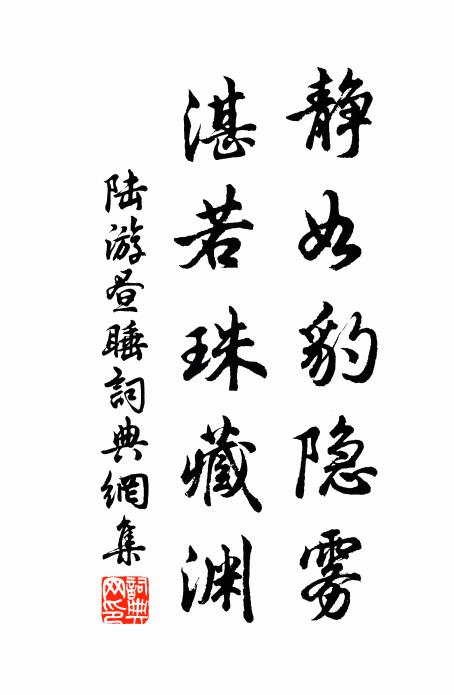 静如豹隐雾
湛若珠藏渊
陆游昼睡詞典網集
詞典
网印